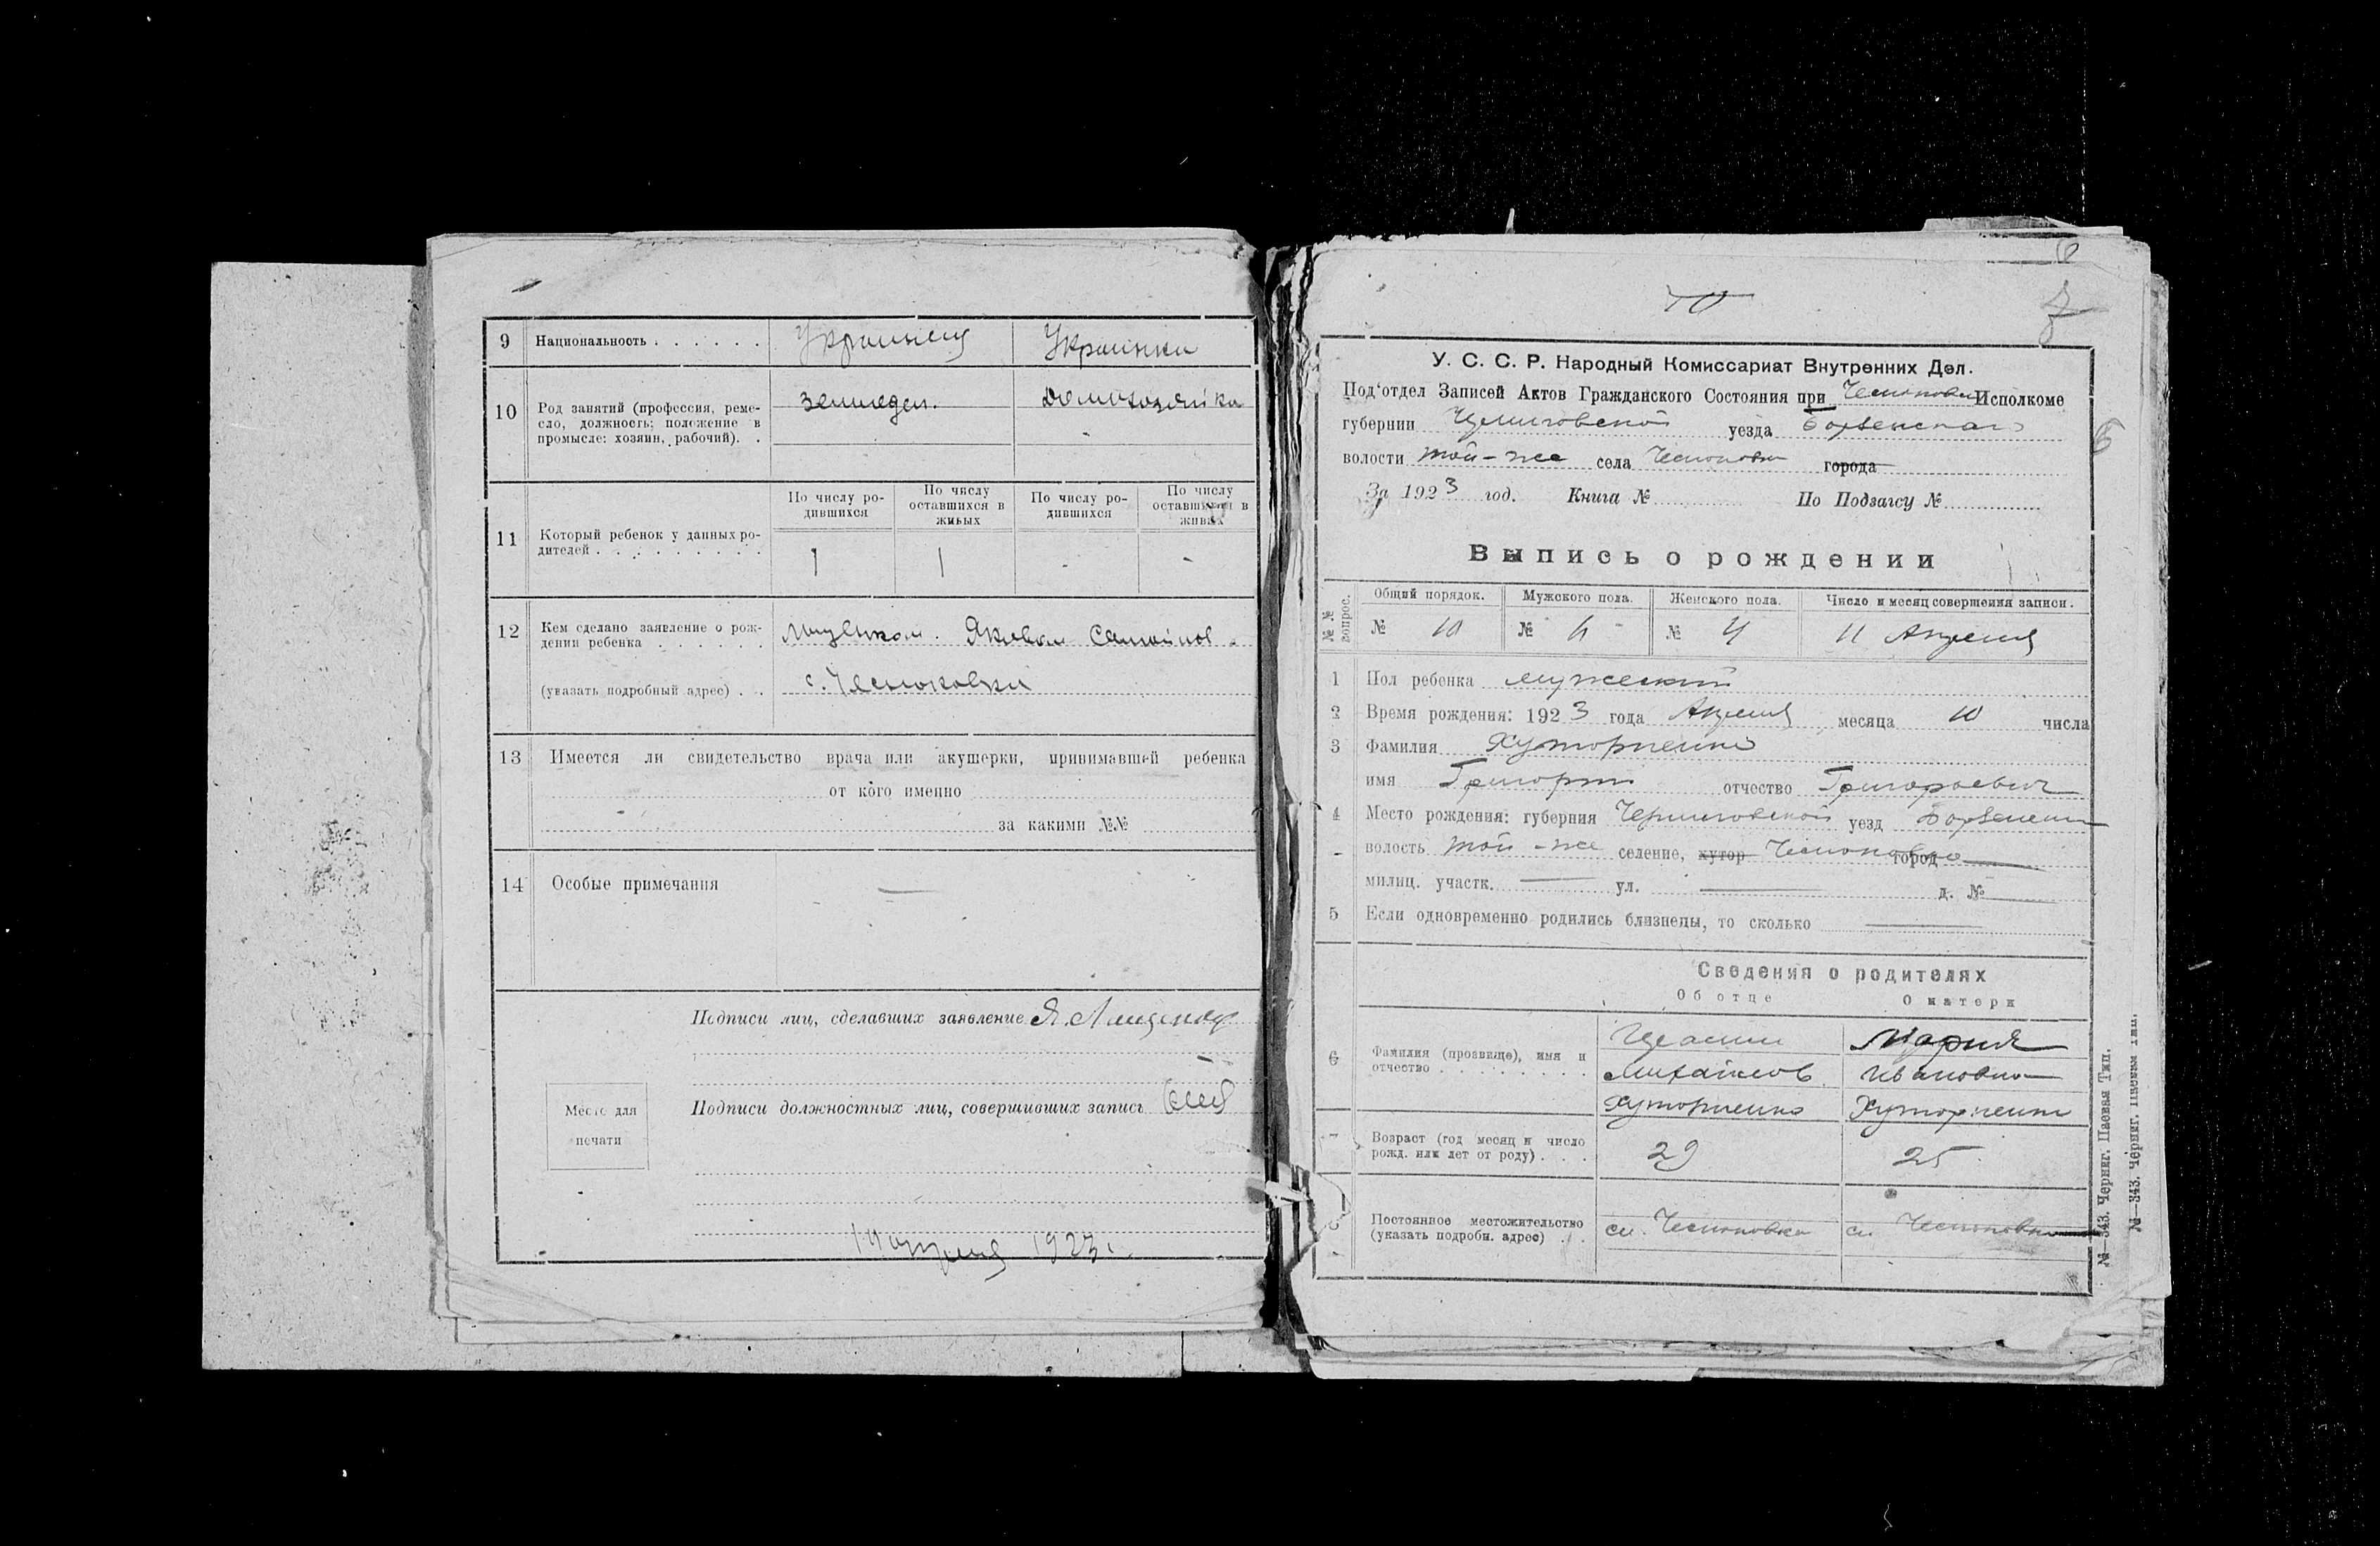 9 Национальность . . . . . . Украинец Украинка
10 Род занятий (профессия, реме-
сло, должность; положение в
промысле: хозяин, рабочий). .
земледел. домохозяйка
По числу ро-
дившихся
По числу
оставшихся в
живых
По числу ро-
дившихся
По числу
оставшихся в
живых
11 Который ребенок у данных ро-
дителей . . . . . . . . .
1 1 - -
12 Кем сделано заявление о рож-
дении ребенка . . . . . .
Яковом Самойлов.
(указать подробный адрес) . . с. Чесноковки
13 Имеется ли свидетельство врача или акушерки, принимавшей ребенка
от кого именно
за какими №№
14 Особые примечания —
Подписи лиц, сделавших заявление Я.
Место для
печати
Подписи должностных лиц, совершивших запись
апреля 1923 г.
6
70
7
У. С. С. Р. Народный Комиссариат Внутренних Дел.
Под'отдел Записей Актов Гражданского Состояния при Исполкоме
губернии Черниговской уезда Борзенского
волости той-же села Чесноковки города
За 1923 год. Книга № По Подзагсу №
6
Выпись о рождении
№№ вопрос.
Общий порядок. Мужского пола. Женского пола. Число и месяц совершения записи.
№ 10 № № 11 Апреля
1 Пол ребенка мужеский
2 Время рождения: 1923 года Апреля месяца 10 числа
3 Фамилия Хуторненко
имя Григорий отчество Григорьевич
4 Место рождения: губерния Черниговской уезд Борзенский
волость той-же селение, хутор Чесноковка город
милиц. участк. — ул. — д. № —
5 Если одновременно родились близнецы, то сколько —
Сведения о родителях
Об отце О матери
6 Фамилия (прозвище), имя и
отчество . . . . . . . . .
Мария
Михайлов Ивановна
Хуторненко Хуторненко
7 Возраст (год месяц и число
рожд. или лет от роду) . . .
29 25
8 Постоянное местожительство
(указать подробн. адрес) . . .
сл. Чесноковка сл. Чесноковка
№—343. Черниг. Паевая Тип.
№—343. Черниг. Паевая Тип.